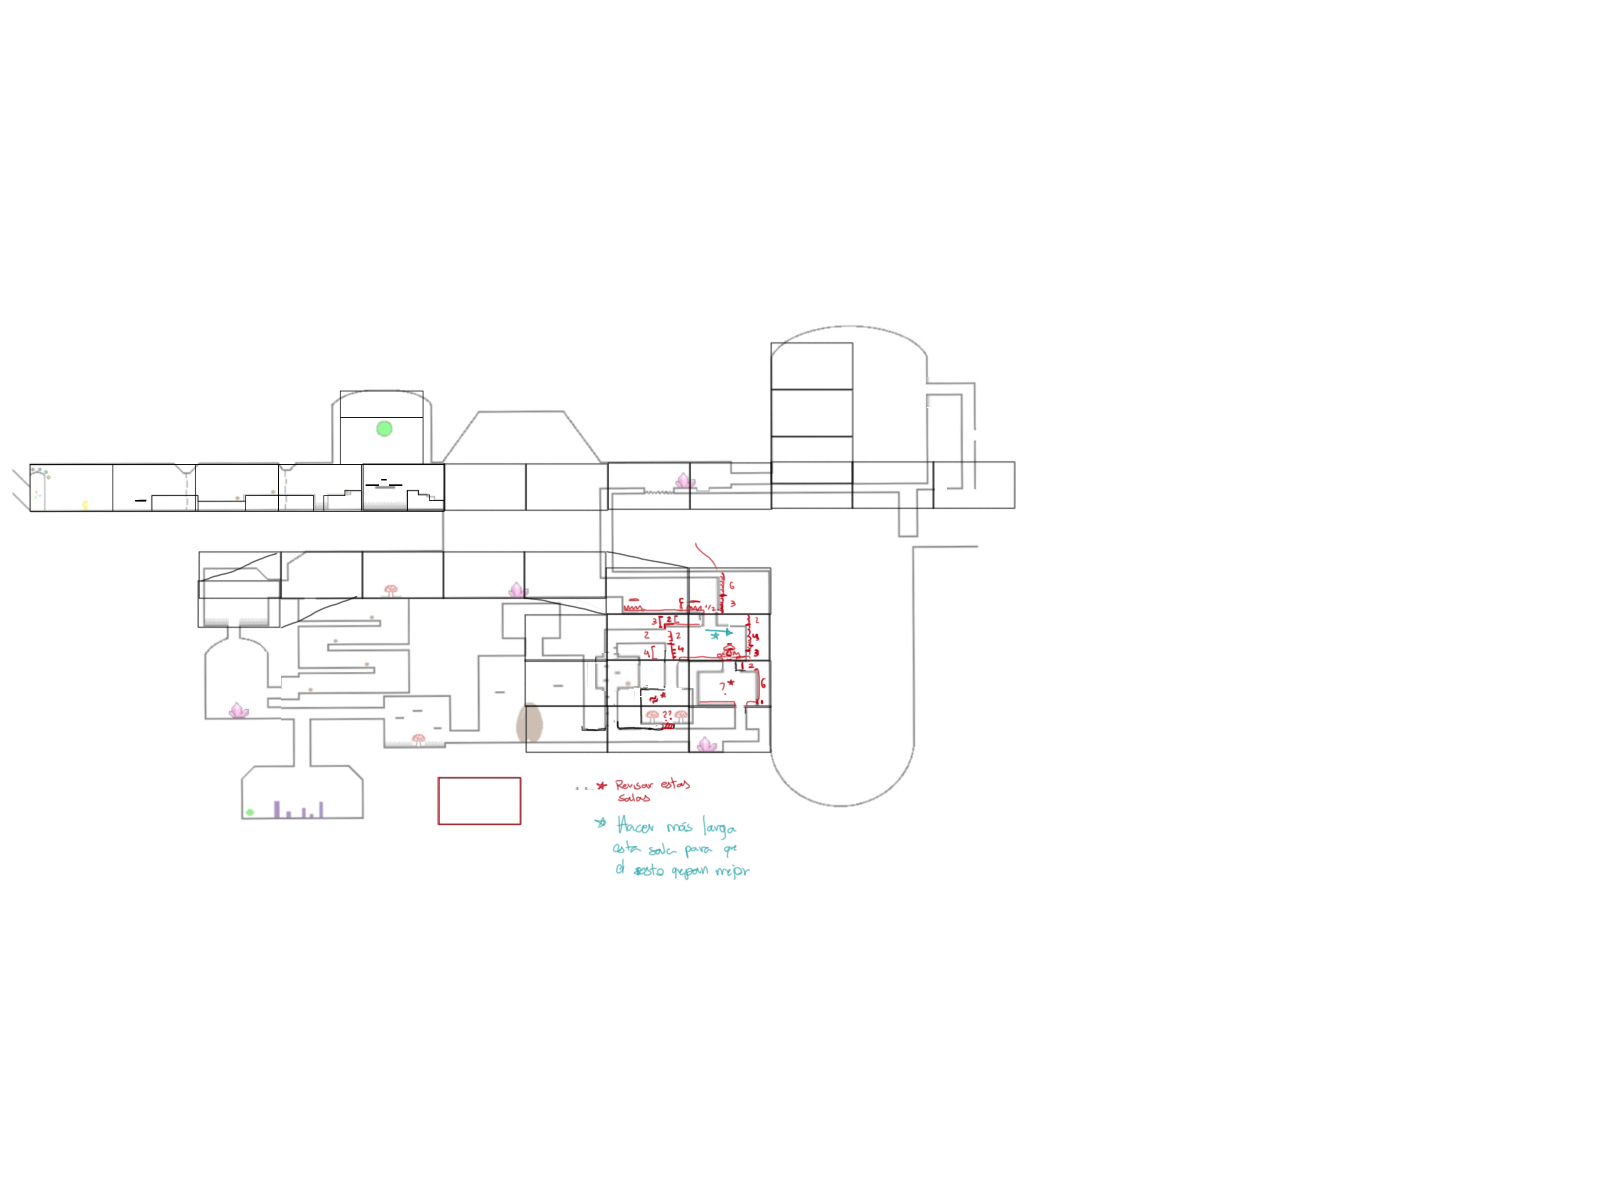 6
3
1/2
3 2
2
2 2 4
4 4 3
2
? 6
??
Revisar estas
salas
Hacer más larga
esta sala para que
el resto quepan mejor